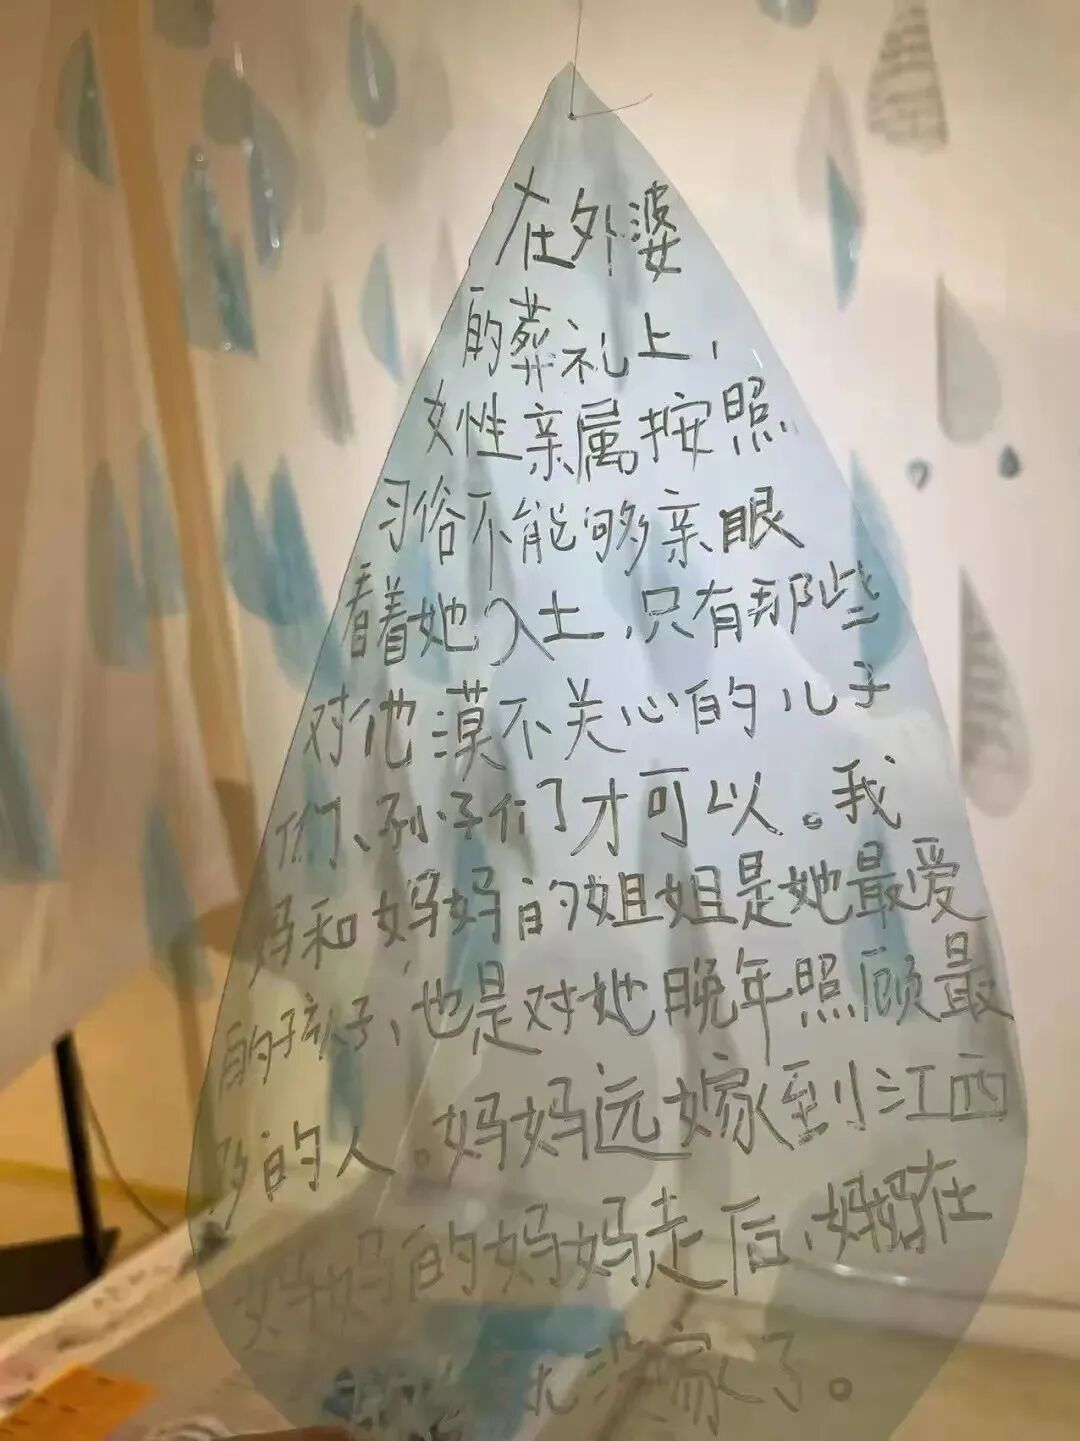 在外婆
的葬礼上，
女性亲属按照
习俗不能够亲眼
看着她入土，只有那些
对他漠不关心的儿子
们、孙子们才可以。我
妈和妈妈的姐姐是她最爱
的孩子，也是对她晚年照顾最
多的人。妈妈远嫁到江西
妈妈的妈妈走后，妈妈在
就没家了。